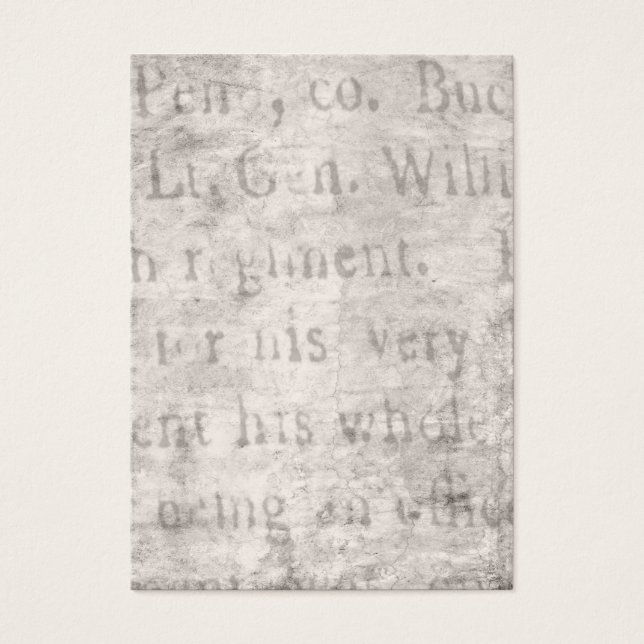 Penn, co. Buc
Lt. Gen. Willi
h regiment.
for his very
ent his whole
being an offic